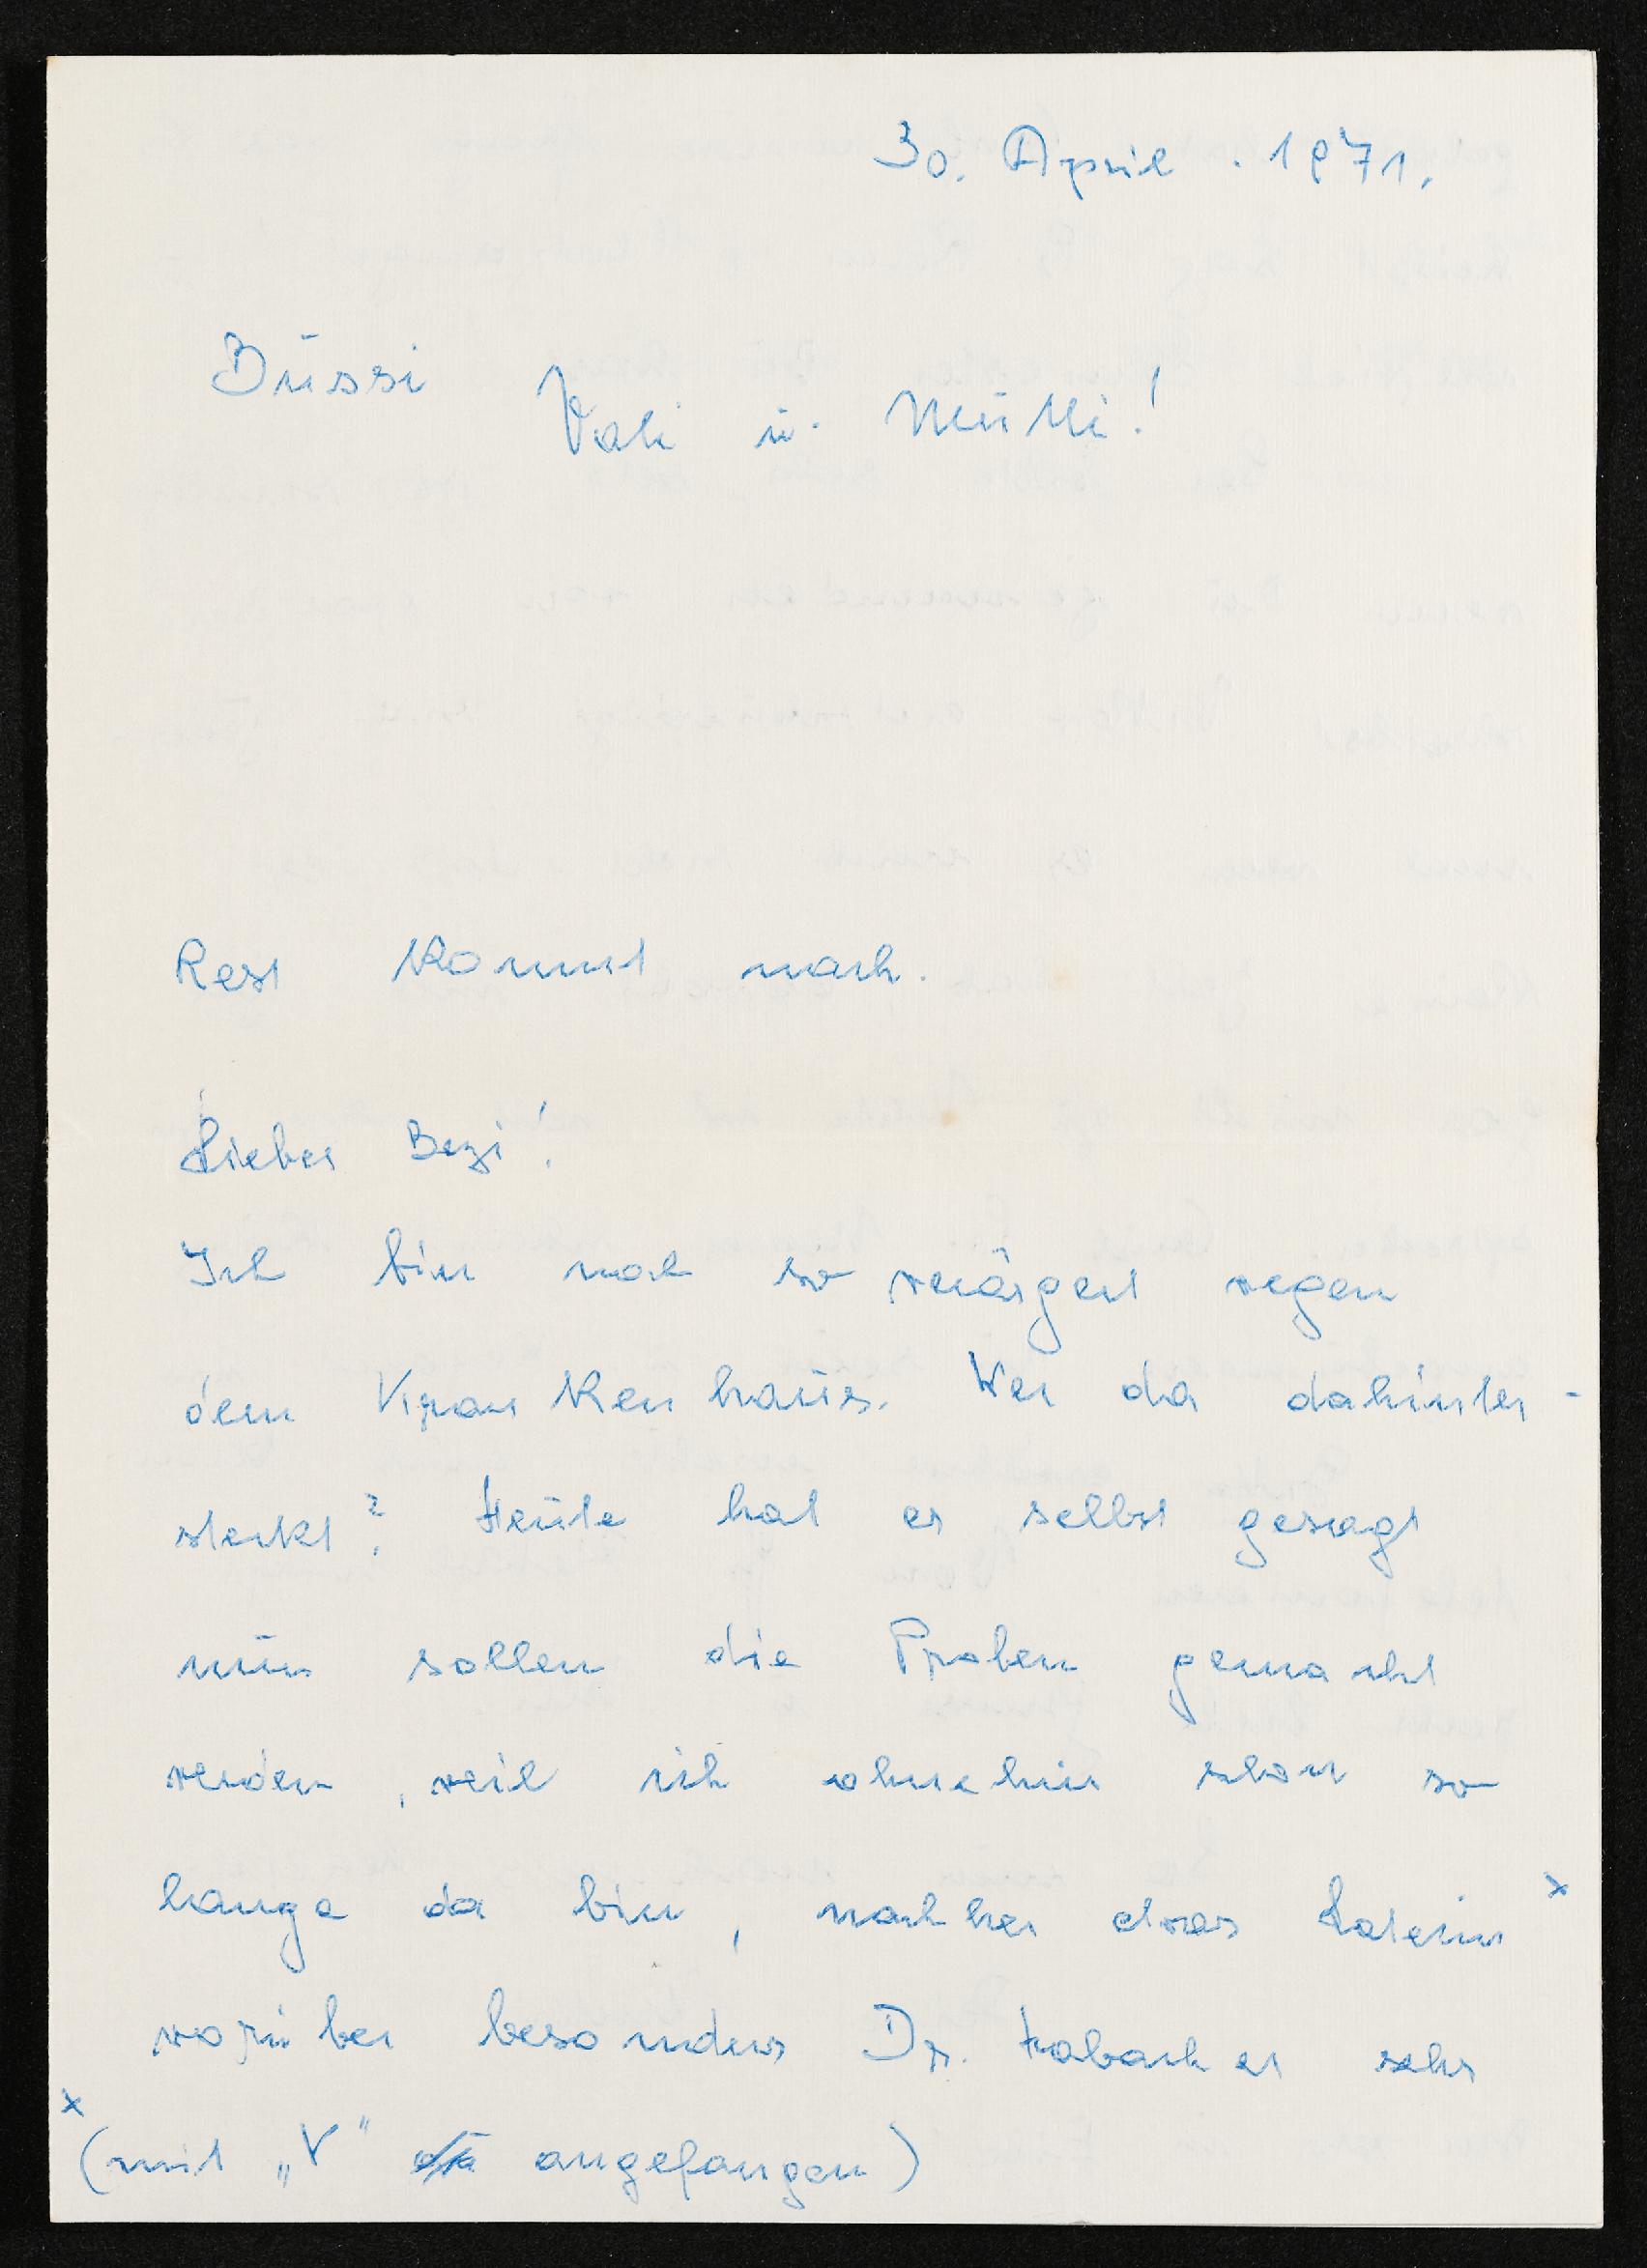 30. April . 1971.
Bussi
Vati u. Mutti!
Rest kommt nach.
Lieber Bezi!
Ich bin noch so verärgert wegen
dem Krankenhaus. Wer da dahinter-
steckt? Heute hat er selbst gesagt
nun sollen die Proben gemacht
werden, weil ich ohnehin schon so
lange da bin, nachher etwas Latein x
worüber besonders Dr. Habacher sehr
x
(mit „V" angefangen)